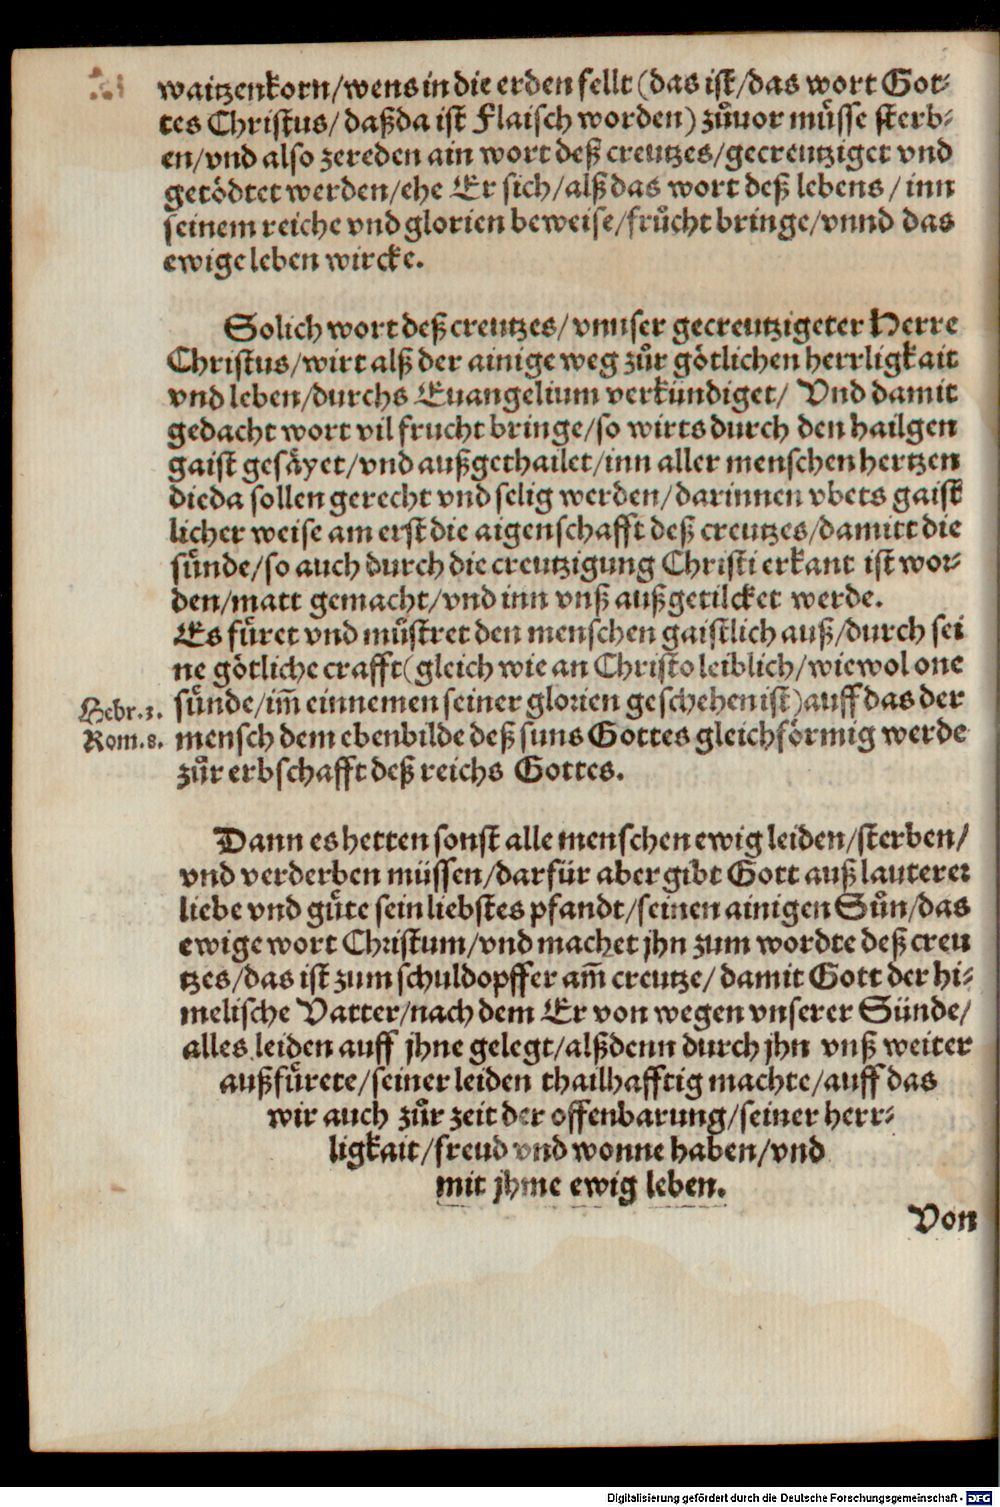 waitzenkorn/wens in die erden fellt (das ist/das wort Got⸗
tes Christus/ daßda ist Flaisch worden) zůuor müsse sterb⸗
en/vnd also zereden ain wort deß creutzes/gecreutziget vnd
getödtet werden/ehe Er sich/alß das wort deß lebens/ inn
seinem reiche vnd glorien beweise/frücht bringe/vnnd das
ewige leben wircke.
Solich wort deß creutzes/ vnnser gecreutzigeter Herre
Christus/wirt alß der ainige weg zůr götlichen herrligkait
vnd leben/durchs Euangelium verkündiget/ Vnd damit
gedacht wort vil frucht bringe/so wirts durch den hailgen
gaist gesäyet/vnd außgethailet/inn aller menschen hertzen
dieda sollen gerecht vnd selig werden/darinnen vbets gaist
licher weise am erst die aigenschafft deß creutzes/damitt die
sünde/so auch durch die creutzigung Christi erkant ist wor⸗
den/matt gemacht/vnd inn vnß außgetilcket werde.
Es füret vnd müstret den menschen gaistlich auß/durch sei
ne götliche crafft(gleich wie an Christo leiblich/wiewol one
Hebr.3. sünde/im̄ einnemen seiner glorien geschehen ist)auff das der
Rom.8. mensch dem ebenbilde deß suns Gottes gleichförmig werde
zůr erbschafft deß reichs Gottes.
Dann es hetten sonst alle menschen ewig leiden/sterben/
vnd verderben müssen/darfür aber gibt Gott auß lauterer
liebe vnd güte sein liebstes pfandt/seinen ainigen Sůn/das
ewige wort Christum/vnd machet jhn zum wordte deß creu
tzes/das ist zum schuldopffer am̄ creutze/ damit Gott der hi⸗
melische Vatter/nach dem Er von wegen vnserer Sünde/
alles leiden auff jhne gelegt/alßdenn durch jhn vnß weiter
außfürete/seiner leiden thailhafftig machte/auff das
wir auch zůr zeit der offenbarung/seiner herr⸗
ligkait/freud vnd wonne haben/vnd
mit jhme ewig leben.
Von
Digitalisierung gefördert durch die Deutsche Forschungsgemeinschaft - DFG